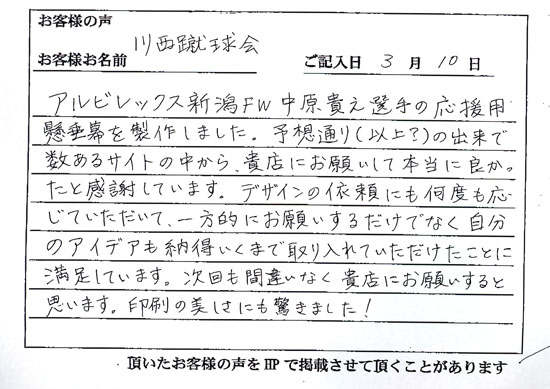 お客様の声
お客様お名前 川西蹴球会 ご記入日 3 月 10 日
アルビレックス新潟FW中原貴之選手の応援用
懸垂幕を製作しました。予想通り(以上?)の出来で
数あるサイトの中から、貴店にお願いして本当に良かっ
たと感謝しています。デザインの依頼にも何度も応
じていただいて、一方的にお願いするだけでなく自分
のアイデアも納得いくまで取り入れていただけたことに
満足しています。次回も間違いなく貴店にお願いすると
思います。印刷の美しさにも驚きました!
頂いたお客様の声をHPで掲載させて頂くことがあります